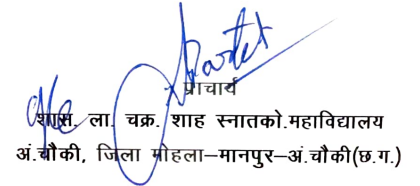 प्राचार्य
शास. ला. चक्र. शाह स्नातको.महाविद्यालय
अं.चौकी, जिला मोहला–मानपुर–अं.चौकी(छ.ग.)